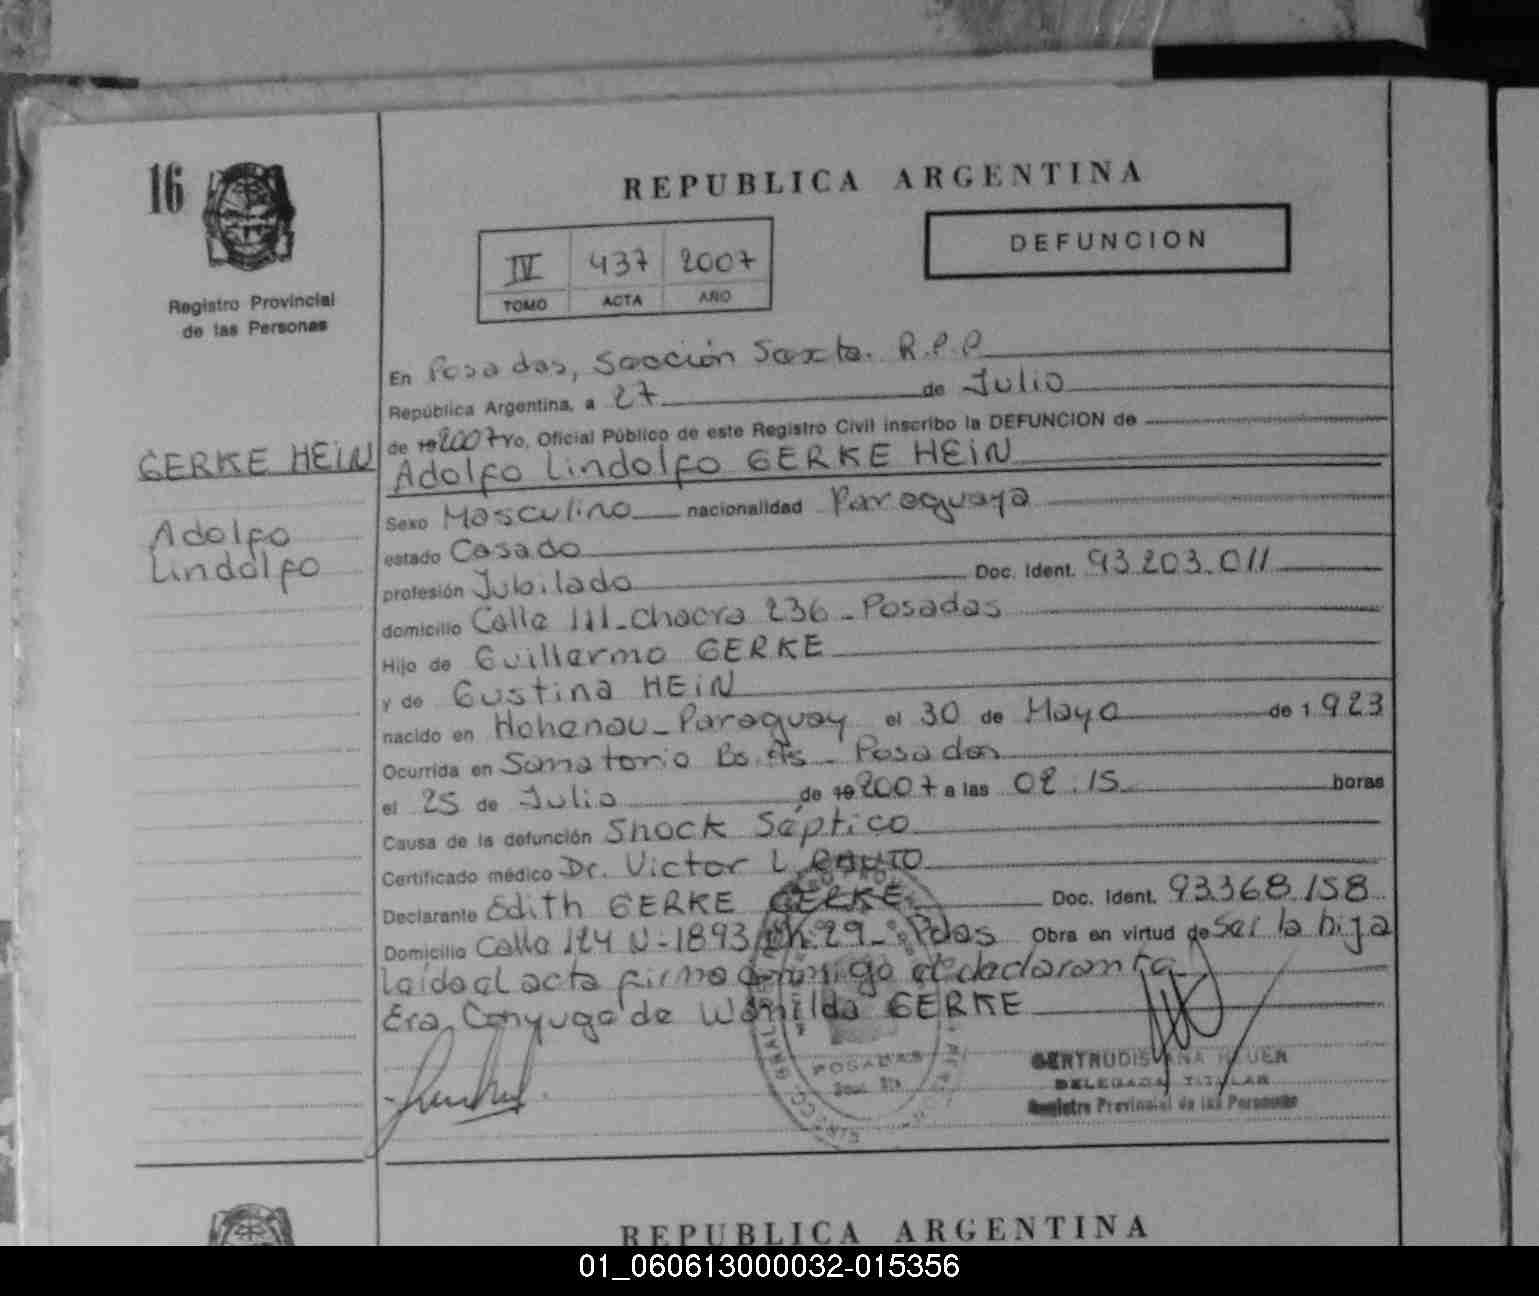 16
REPUBLICA ARGENTINA
DEFUNCION
IV 437 2007
TOMO ACTA AÑO
Registro Provincial
de las Personas
GERKE HEIN
Adolfo
Lindolfo
En Posadas, Sección Sexta. R.P.P
República Argentina, a 27 de Julio
de 19 2007 yo, Oficial Público de este Registro Civil inscribo la DEFUNCION de
Adolfo Lindolfo GERKE HEIN
Sexo Masculino nacionalidad Paraguaya
estado Casado
profesión Jubilado Doc. Ident. 93.203.011
domicilio Calle 111 - Chacra 236 - Posadas
Hijo de Guillermo GERKE
y de Gustina HEIN
nacido en Hohenau - Paraguay el 30 de Mayo de 1.923
Ocurrida en Sanatorio Bs. As - Posadas
el 25 de Julio de 19 2007 a las 02.15 horas
Causa de la defunción Shock Séptico
Certificado médico Dr. Victor L.
Declarante Edith GERKE GERKE Doc. Ident. 93.368.158
Domicilio Calle 124 N-1893 Ch.29 - Pdas Obra en virtud de Ser la hija
Leida el acta firma conmigo el declarante
Era Conyuge de Wanilda GERKE
POSADAS
GERTRUDIS ANA
DELEGADA TITULAR
Registro Provincial de las Personas
REPUBLICA ARGENTINA
01_060613000032-015356